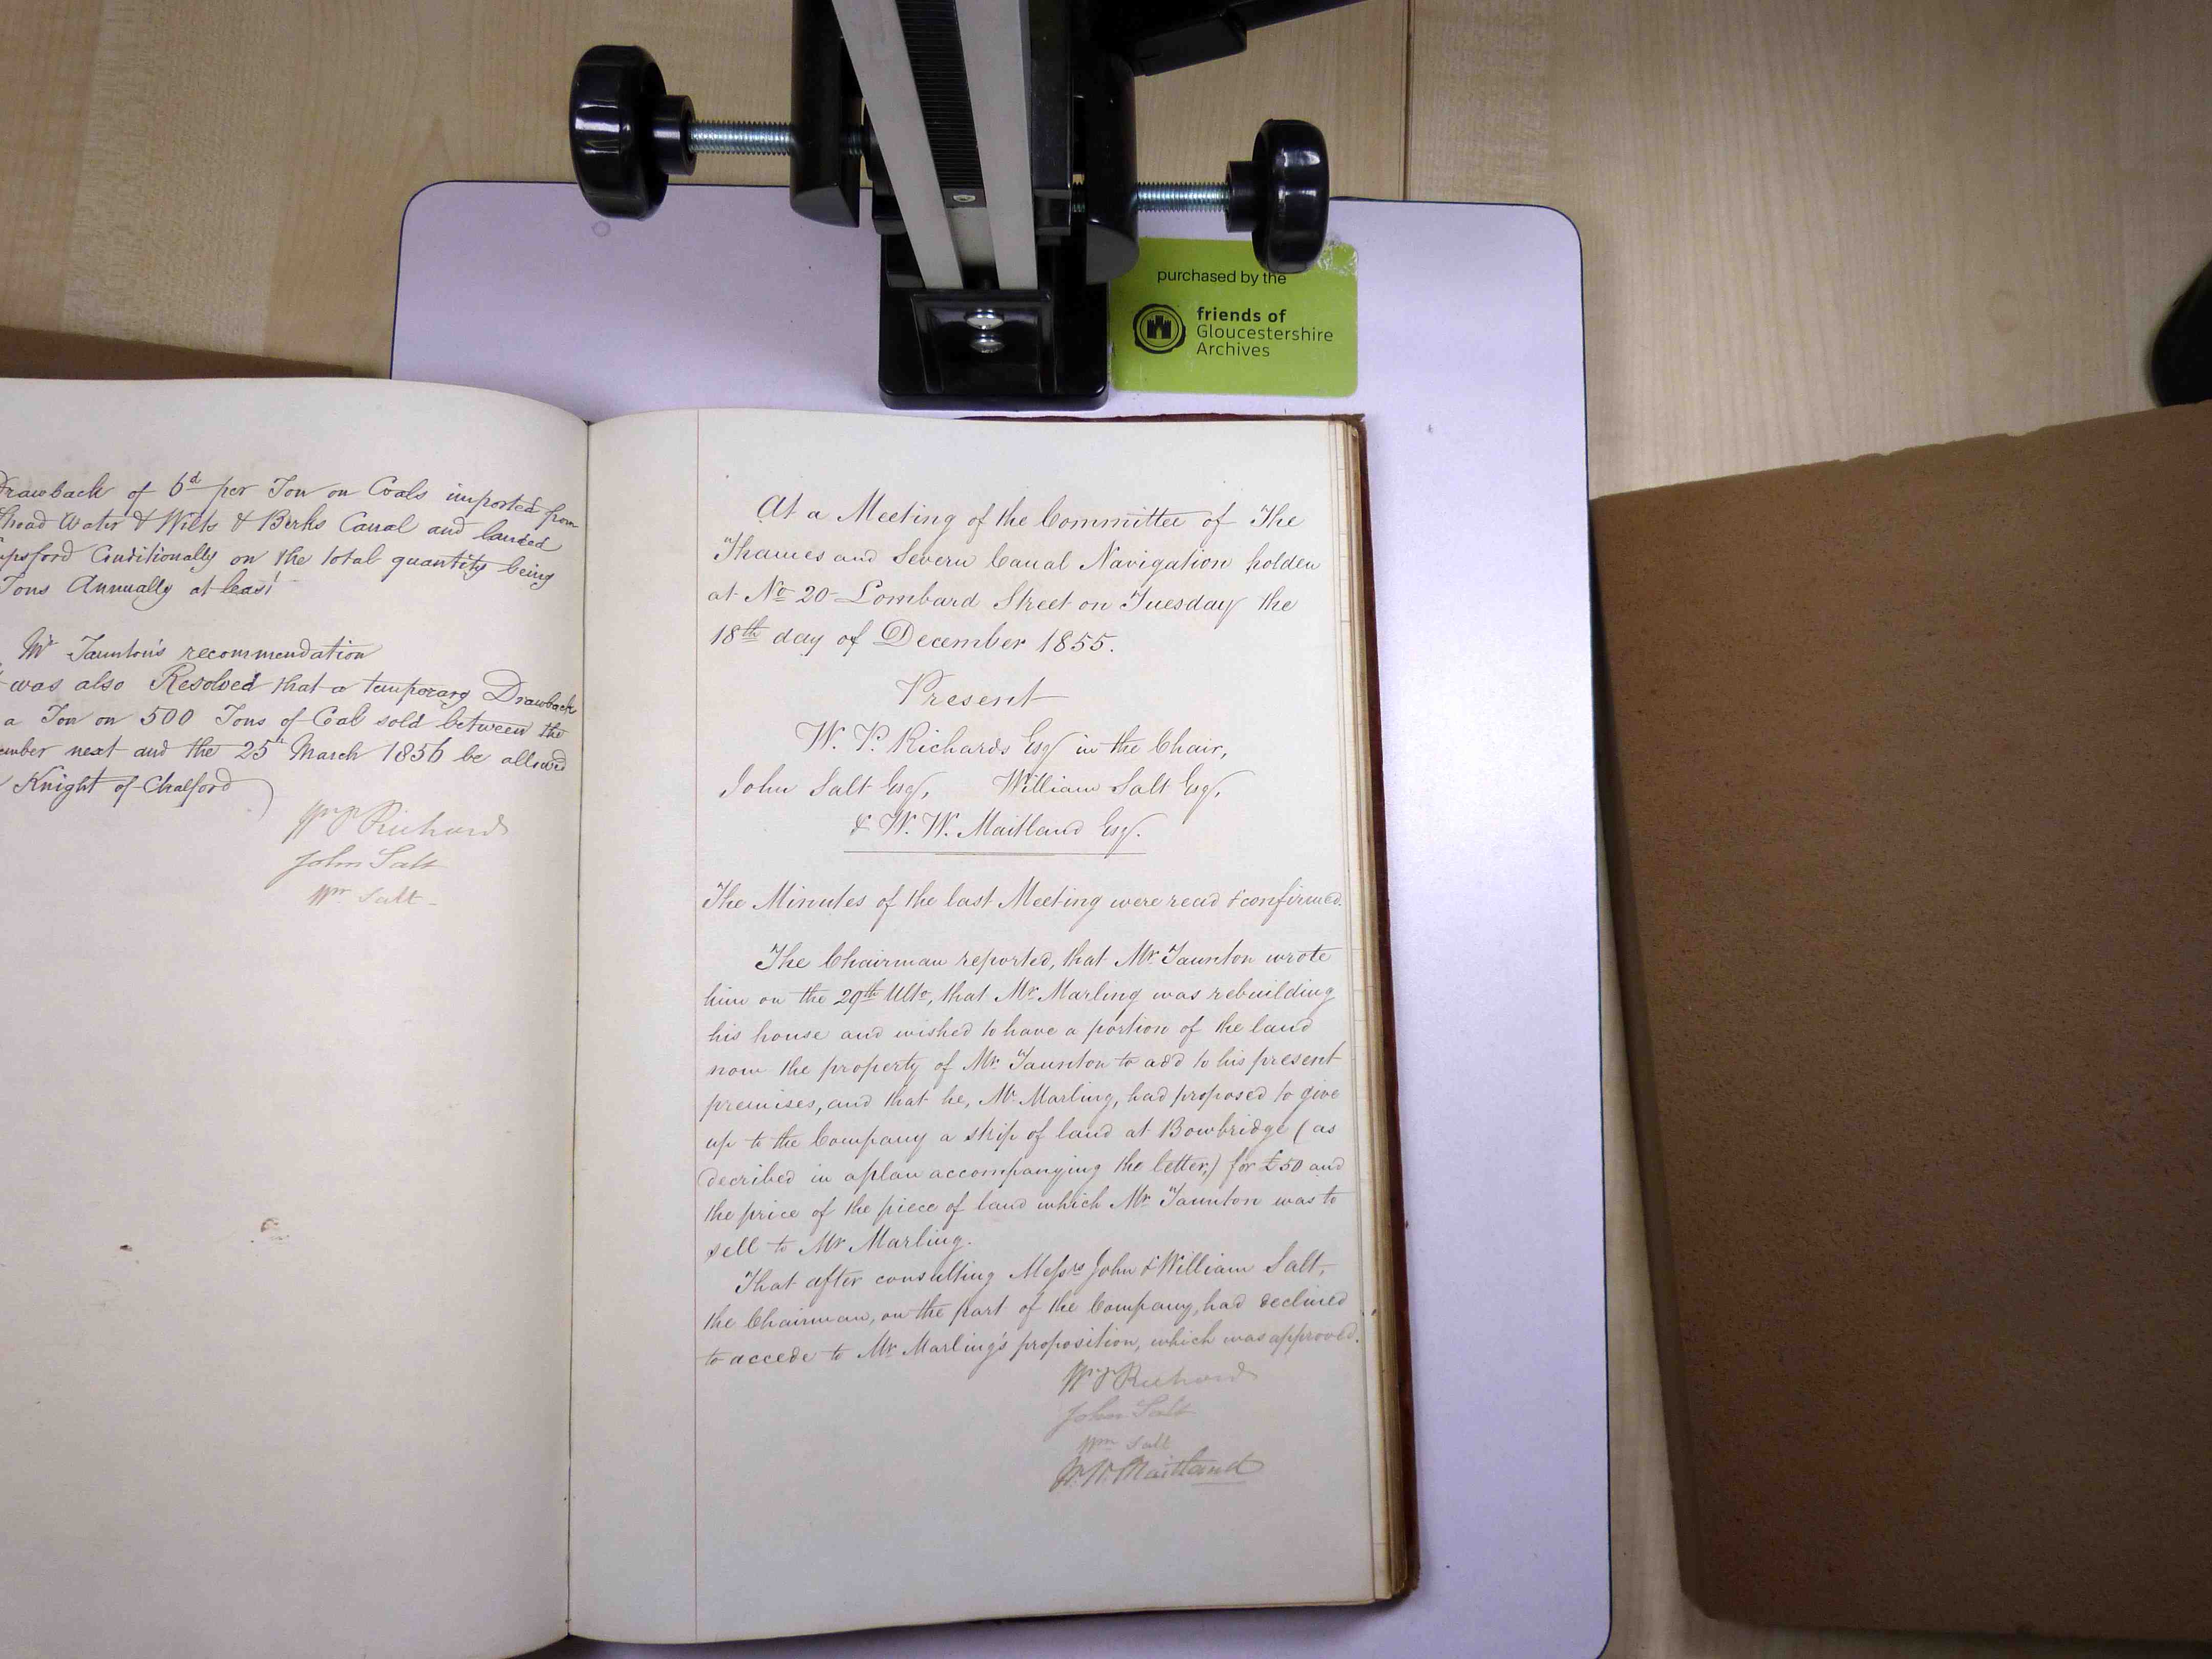 purchased by the
friends of
Gloucestershire
Archives
Drawback of 6d per Ton on Coals imported from
head Water & Wilts & Berks Canal and landed
Conditionally on the total quantity being
Tons Annually at least
Mr Taunton's recommendation
was also Resolved that a temporary Drawback
a Ton on 500 Tons of Coal sold between the
next and the 25th March 1856 be allowed
Knight of Chalford
Wm P Richards
John Salt
Wm Salt
At a Meeting of the Committee of The
Thames and Severn Canal Navigation holden
at No 20 Lombard Street on Tuesday the
18th day of December 1855.
Present
W. P. Richards Esqr in the Chair,
John Salt Esqr, William Salt Esqr,
& W. W. Maitland Esqr.
The Minutes of the last Meeting were read & confirmed.
The Chairman reported, that Mr Taunton wrote
him on the 29th Ulto, that Mr Marling was rebuilding
his house and wished to have a portion of the land
now the property of Mr Taunton to add to his present
premises, and that he, Mr Marling, had proposed to give
up to the Company a strip of land at Bowbridge (as
decribed in a plan accompanying the letter,) for £50 and
the price of the piece of land which Mr Taunton was to
sell to Mr Marling.
That after consulting Messrs John & William Salt,
the Chairman, on the part of the Company, had declined
to accede to Mr Marling's proposition, which was approved.
Wm P Richards
John Salt
Wm Salt
W. W. Maitland